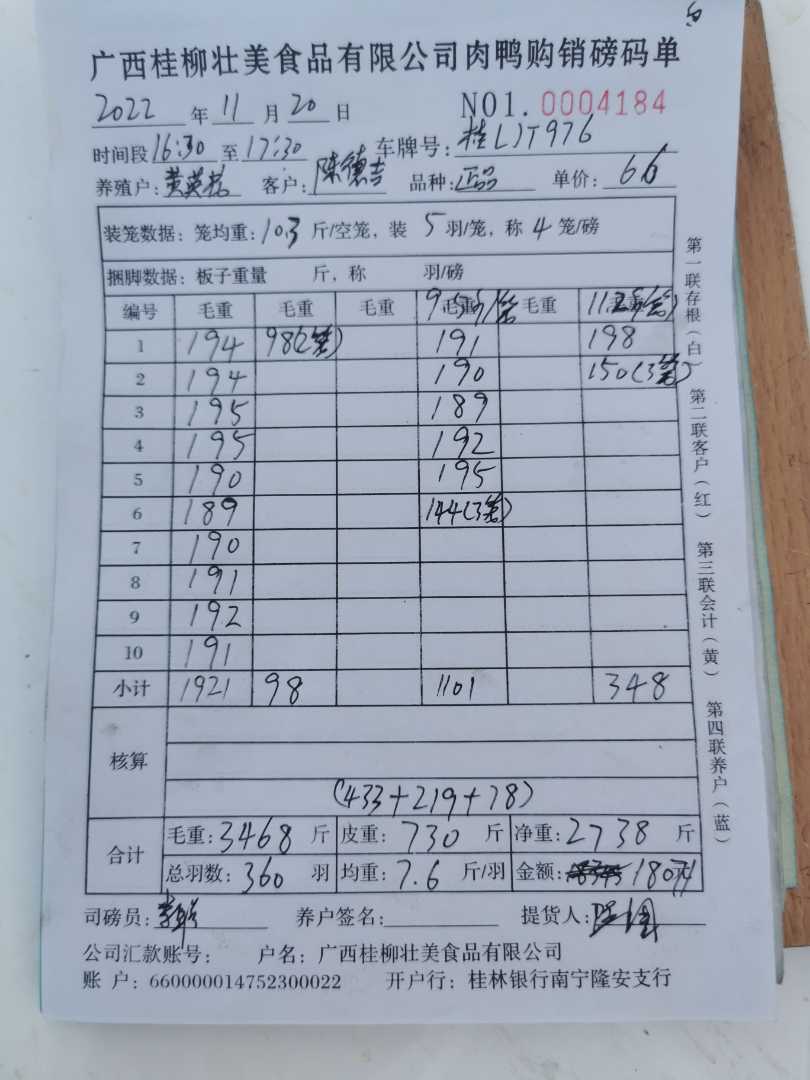 广西桂柳壮美食品有限公司肉鸭购销磅码单
2022 年 11 月 20 日 NO1. 0004184
时间段 16:30 至 17:30 车牌号: 桂LJT976
养殖户: 客户: 陈德吉 品种: 正品 单价: 6.6
装笼数据: 笼均重: 10.3 斤/空笼, 装 5 羽/笼, 称 4 笼/磅
捆脚数据: 板子重量 斤, 称 羽/磅
编号 毛重 毛重 毛重 毛重 毛重
1 194 98(2笼) 191 198
2 194 190 150(3笼)
3 195 189
4 195 192
5 190 195
6 189 144(3笼)
7 190
8 191
9 192
10 191
小计 1921 98 1101 348
核算
(433+219+78)
合计
毛重: 3468 斤 皮重: 730 斤 净重: 2738 斤
总羽数: 360 羽 均重: 7.6 斤/羽 金额:
司磅员: 养户签名: 提货人:
公司汇款账号: 户名: 广西桂柳壮美食品有限公司
账 户: 660000014752300022 开户行: 桂林银行南宁隆安支行
第一联存根(白) 第二联客户(红) 第三联会计(黄) 第四联养户(蓝)